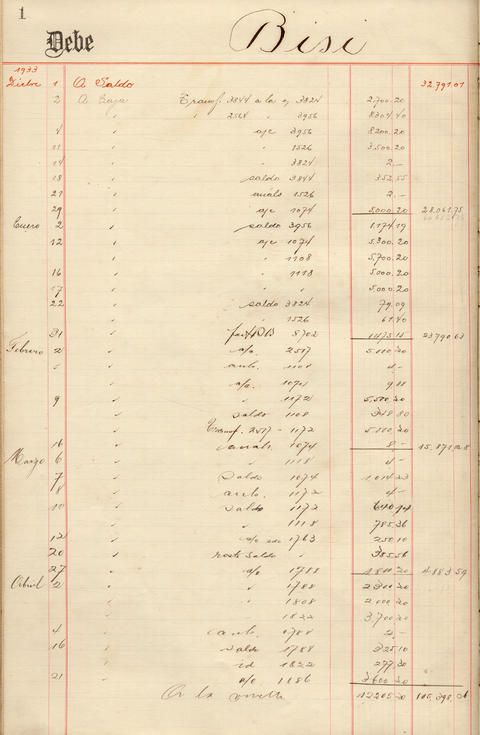 1
Debe Bisi
1933
Dicbre 1 A Saldo 32.791.01
2 A Caja Transf. 3844 a la c/ 3824 2.700.20
" " 2564 " 3956 8304.40
4 " a/c 3956 8200.20
11 " " 1526 3.500.20
14 " " 3824 2.-
18 " saldo 3844 352.55
21 " anulo 1526 2.-
29 " a/c 1074 5.000.20 28.061.75
Enero 2 " saldo 3956 1.174.19
12 " a/c 1074 5.300.20
" " 1108 5.700.20
16 " " 1118 5.000.20
17 " " " 5.000.20
22 " saldo 3824 79.09
" " 1526 61.40
31 " 5702 1473.15 23790.63
Febrero 2 " a/c. 2517 5.000.20
5 " anul. 1108 4.-
" a/c. 1074 9.11
9 " " 1172 5.500.20
" saldo 1108 348.80
" Transf. 2517 - 1172 5.000.20
16 " anul. 1074 8.- 15.871.28
Marzo 6 " " 1118 4.-
7 " saldo 1074 1.014.23
8 " anul. 1172 4.-
10 " saldo 1172 640.14
" " 1118 785.36
12 " a/c 1763 250.10
20 " resto saldo " 385.56
27 " a/c 1788 1.800.20 4.883.59
Abril 2 " " 1788 2.300.20
" " 1808 2.000.20
" " 1822 3.700.20
4 " anul. 1788 2.-
16 " saldo 1788 325.10
" id 1822 277.30
21 " a/c 1886 3600.20
A la vuelta 12205.20 105.398.26